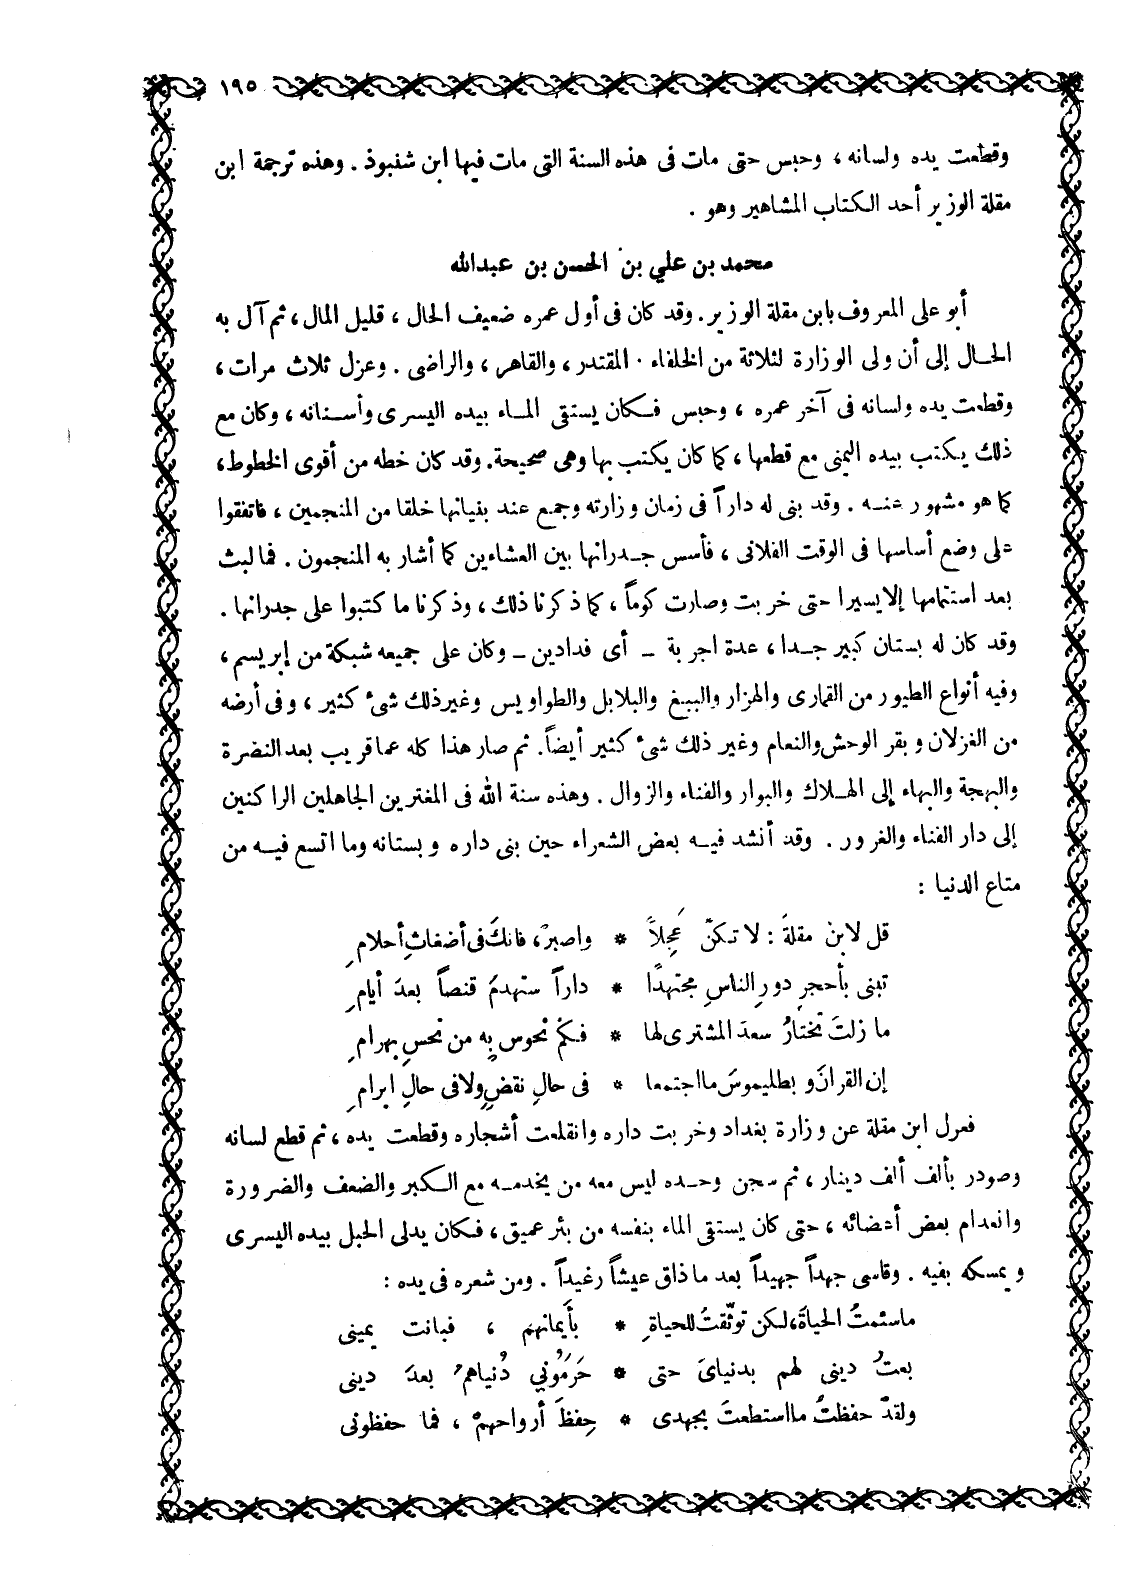 ١٩٥
وقطعت يده ولسانه ، وحبس حتى مات فى هذه السنة التى مات فيها ابن شنبوذ . وهذه ترجمة ابن
مقلة الوزير أحد الكتاب المشاهير وهو .
محمد بن علي بن الحسن بن عبدالله
أبو على المعروف بابن مقلة الوزير . وقد كان فى أول عمره ضعيف الحال ، قليل المال ، ثم آل به
الحال إلى أن ولى الوزارة لثلاثة من الخلفاء . المقتدر ، والقاهر ، والراضى . وعزل ثلاث مرات ،
وقطعت يده ولسانه فى آخر عمره ، وحبس فكان يستقى الماء بيده اليسرى وأسنانه ، وكان مع
ذلك يكتب بيده اليمنى مع قطعها ، كما كان يكتب بها وهى صحيحة . وقد كان خطه من أقوى الخطوط ،
كما هو مشهور عنه . وقد بنى له داراً فى زمان وزارته وجمع عند بقيانها خلقا من المنجمين ، فاتفقوا
على وضع أساسها فى الوقت الفلانى ، فأسس جدرانها بين العشاءين كما أشار به المنجمون . فما لبث
بعد استتمامها إلا يسيرا حتى خربت وصارت كوماً ، كما ذكرنا ذلك ، وذكرنا ما كتبوا على جدرانها .
وقد كان له بستان كبير جدا ، عدة اجربة - أى فدادين - وكان على جميعه شبكة من إبريسم ،
وفيه أنواع الطيور من القمارى والهزار والببغ والبلابل والطواويس وغير ذلك شىء كثير ، وفى أرضه
من الغزلان وبقر الوحش والنعام وغير ذلك شىء كثير أيضاً . ثم صار هذا كله عما قريب بعد النضرة
والبهجة والبهاء إلى الهلاك والبوار والفناء والزوال . وهذه سنة الله فى المغترين الجاهلين الراكنين
إلى دار الفناء والغرور . وقد أنشد فيه بعض الشعراء حين بنى داره وبستانه وما اتسع فيه من
متاع الدنيا :
قل لابن مقلةَ : لا تكنْ عَجِلاً * واصبرْ ، فانكَ فى أضغاثِ أحلامِ
تبنى بأحجرِ دورِ الناسِ مجتهدًا * داراً ستهدمَ قنصاً بعدَ أيامِ
ما زلتَ تختارُ سعدَ المشترى لها * فكمْ نحوس بِه من نحسِ بهرامِ
إن القرانَ وبطليموسَ ما اجتمعا * فى حالِ نقضٍ ولا فى حالِ ابرامِ
فعزل ابن مقلة عن وزارة بغداد وخربت داره وانقلعت أشجاره وقطعت يده ، ثم قطع لسانه
وصودر بألف ألف دينار ، ثم سجن وحده ليس معه من يخدمه مع الكبر والضعف والضرورة
وانعدام بعض أعضائه ، حتى كان يستقى الماء بنفسه من بئر عميق ، فكان يدلى الحبل بيده اليسرى
ويمسكه بفيه . وقاسى جهداً جهيداً بعد ما ذاق عيشاً رغيداً . ومن شعره فى يده :
ما سئمتُ الحياةَ ، لكن توثّقتُ للحياةِ * بأيمانهم ، فبانت يمينى
بعتُ دينى لهم بدنياىَ حتى * حَرَمُوني دُنياهمُ بعدَ دينى
ولقدْ حفظتُ ما استطعتَ بجهدى * حِفظَ أرواحهمْ ، فما حفظونى